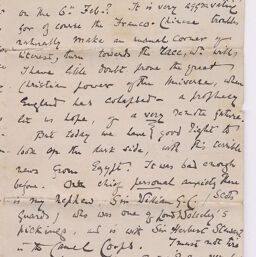 on the 6th Feb.? It is very
for of course the Franco-Chinese trouble
naturally make an unusual corner of
interest, turn towards the race, wh. will,
I have little doubt prove the great
Christian power of the Universe, when
England has colapsed - a prophecy
let us hope, of a very remote future.
But today we have good right to
look on the dark side, with this terrible
news from Egypt. It was bad enough
before. Our chief personal anxiety there
is my Nephew, Sir William G.C. (Scots
Guards) who was one of Lord Wolseley's
pickings, and is with Sir Herbert Stewart
in the Camel Corps. I must not